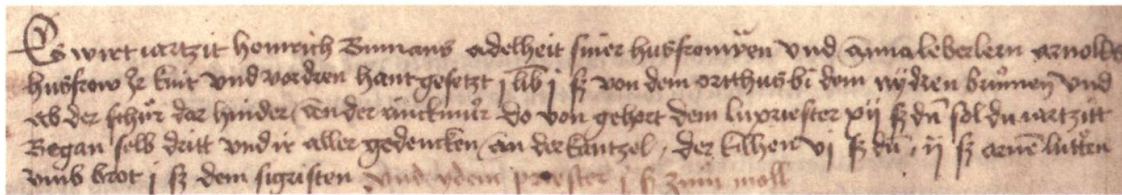 Es wirt iartzit heinrich Bumans adelheit siner husfrowyen vnd Anna leberlern arnolds
husfrow Ir kint vnd vordren hant gesetzt j lib j ß von dem orthus bi dem nydren brunnen vnd
ab der schür dar hinder an der rinckmur do von gehört dem lüpriester xij ß dn sol du iartzitt
Began selb dritt vnd ir aller gedencken an der kantzel, der kilhen vj ß dn, ij ß armen lütten
vmb brot j ß dem sigristen vnd ydem priester j ß zum moll